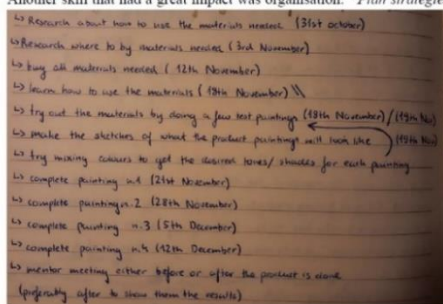 Another skill that had a great impact was organisation. Plan strategie
↳ Research about how to use the materials needed (31st october)
↳ Research where to by materials needed (3rd November)
↳ buy all materials needed (12th November)
↳ learn how to use the materials (18th November) \\
↳ try out the materials by doing a few test paintings (18th November)/(19th Nov)
↳ make the sketches of what the product paintings will look like (19th Nov)
↳ try mixing colours to get the desired tones/ shades for each painting
↳ complete painting n.1 (21st November)
↳ complete painting n.2 (28th November)
↳ complete painting n.3 (5th December)
↳ complete painting n.4 (12th December)
↳ mentor meeting either before or after the product is done
(preferably after to show them the results)